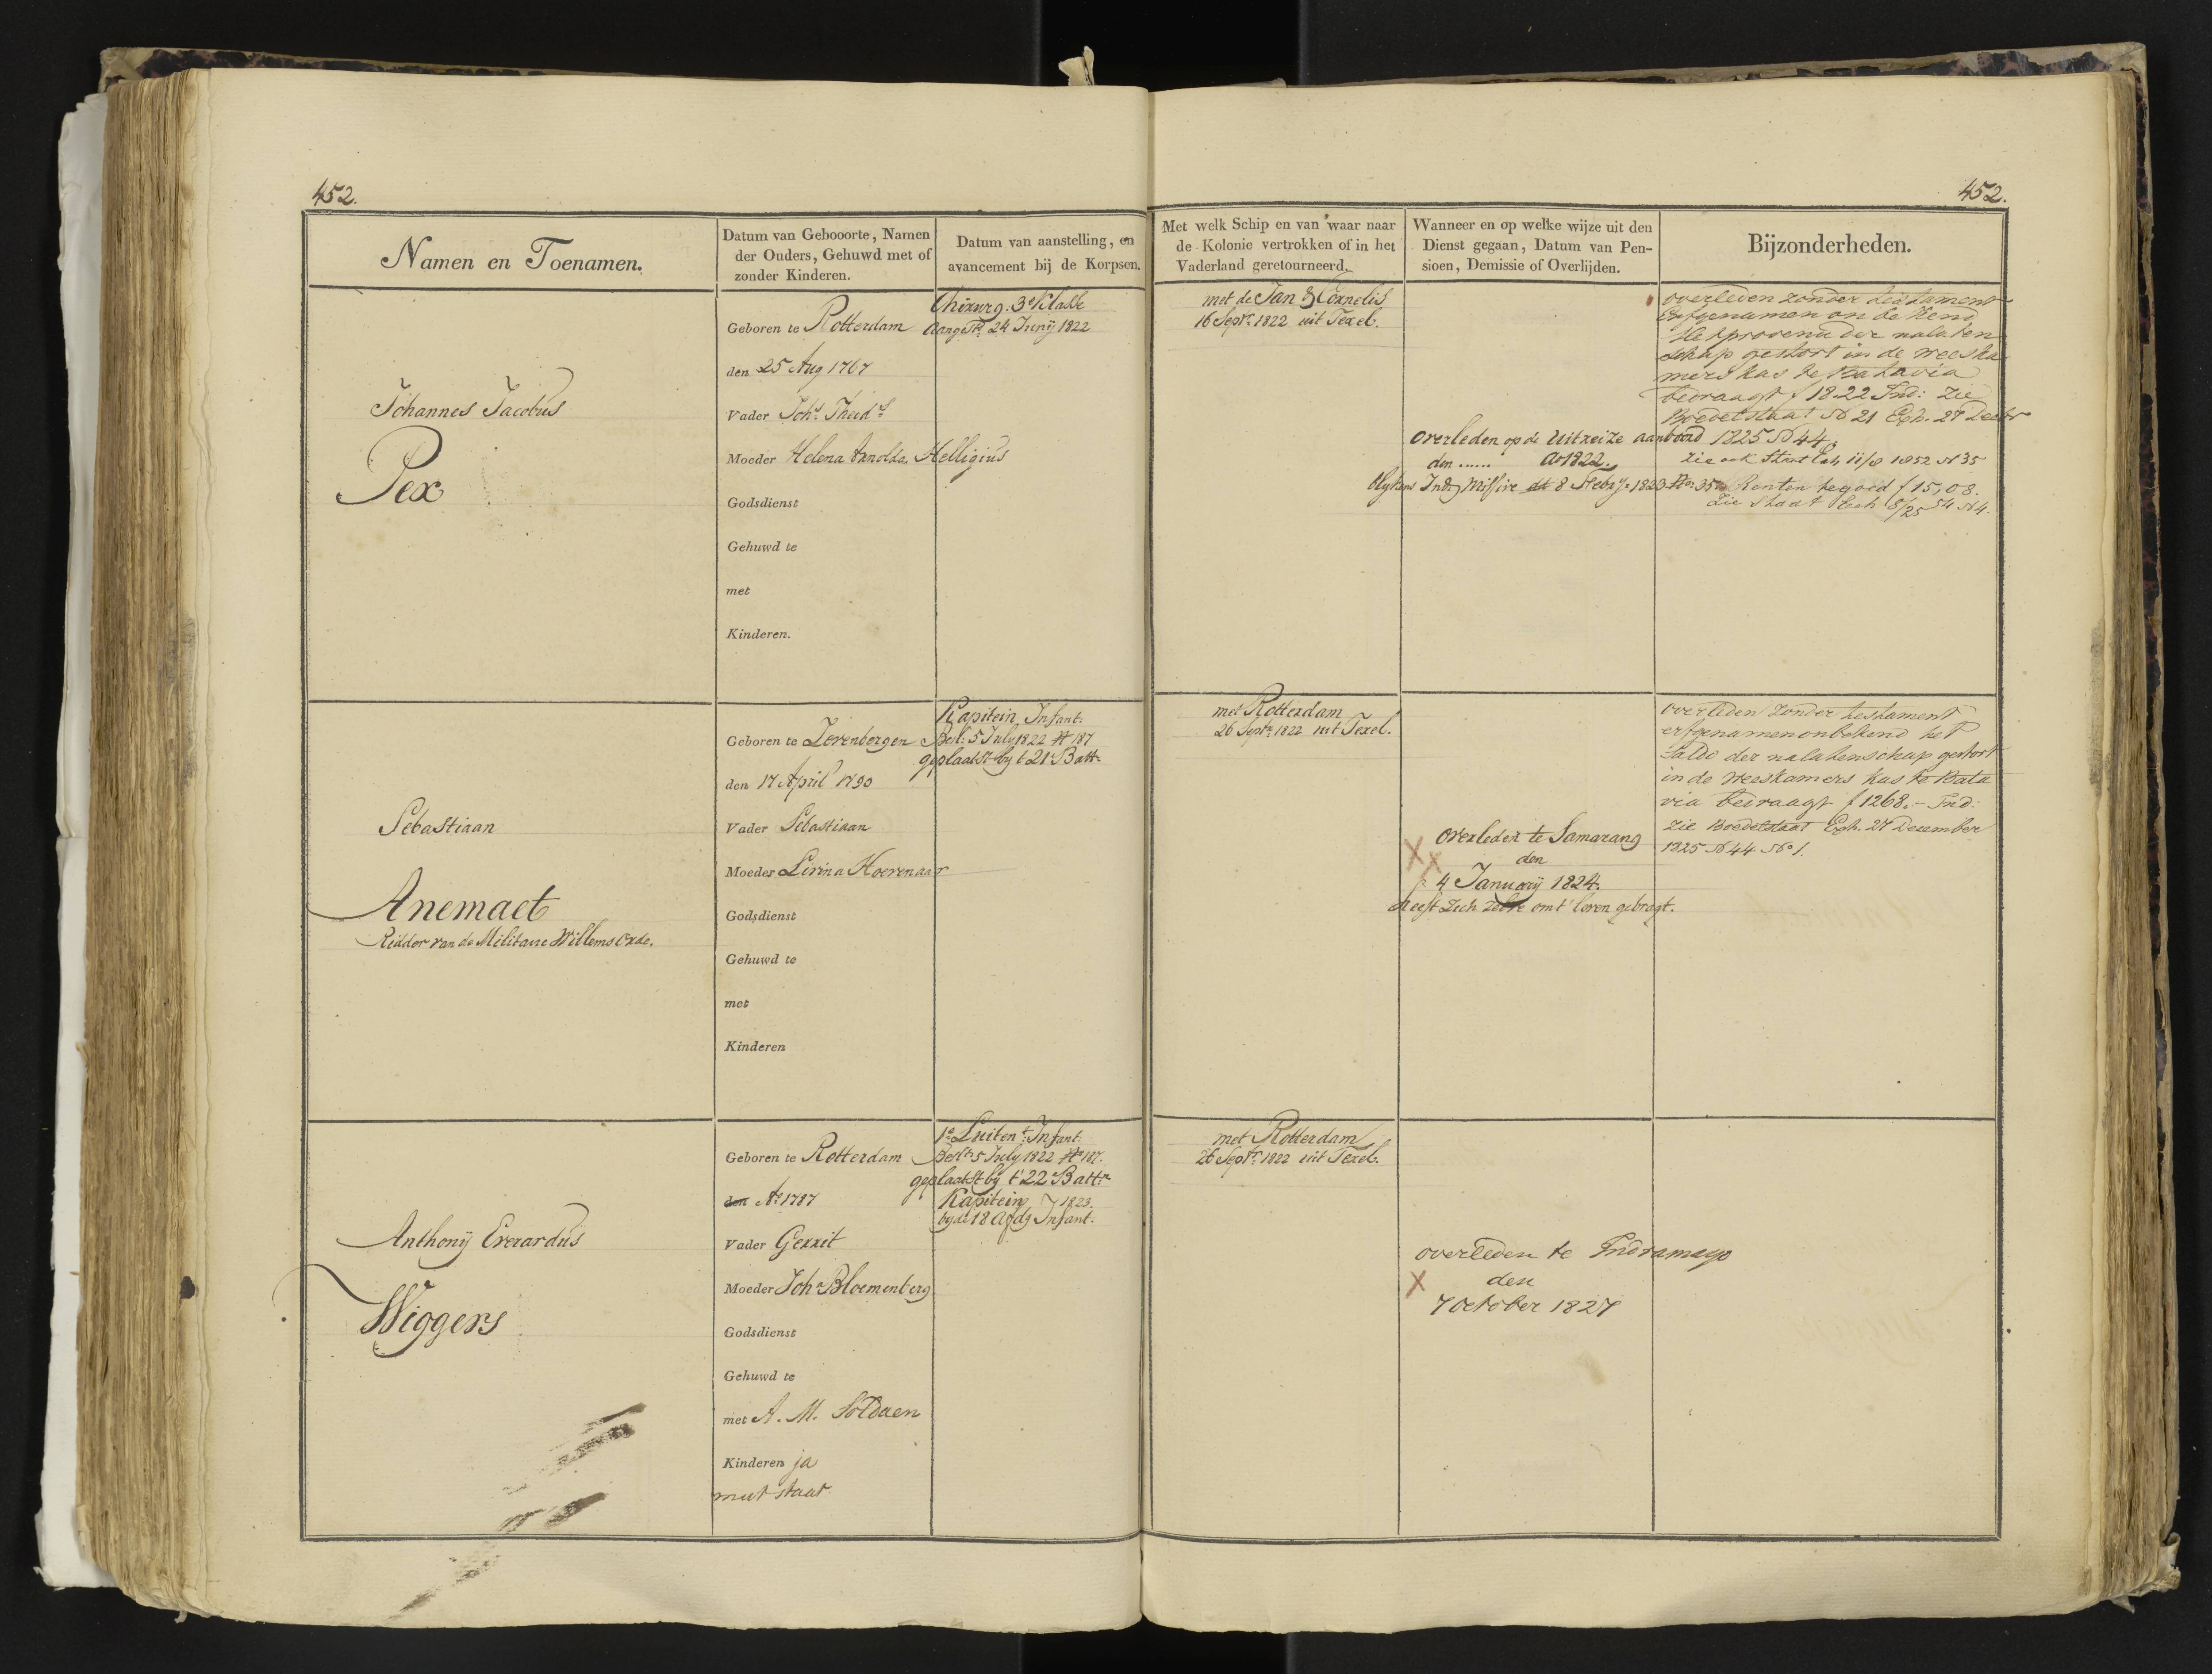 452.
452.
Namen en Toenamen.
Datum van Gebooorte, Namen
der Ouders, Gehuwd met of
zonder Kinderen.
Datum van aanstelling, en
avancement bij de Korpsen.
Met welk Schip en van waar naar
de Kolonie vertrokken of in het
Vaderland geretourneerd.
Wanneer en op welke wijze uit den
Dienst gegaan, Datum van Pen-
sioen, Demissie of Overlijden.
Bijzonderheden.
Johannes Jacobus
Pex
Geboren te Rotterdam
den 25 Aug 1767
Vader Johs Theeds
Moeder Helena Arnolda Helligius
Godsdienst
Gehuwd te
met
Kinderen.
Chirurg. 3e Klasse
Aangest. 24 Junij 1822
met de Jan & Cornelis
16 Septr. 1822 uit Texel.
Overleden op de Uitreize aanboord
den ...... Ao 1822.
blykens Ind. Missive dd 8 Febry. 1823 No. 35
overleden zonder testament
Erfgenamen onbekend
Het provenu der nalaten
schap gestort in de weeska
mers kas te Batavia
bedraagt f 1822 Ind: Zie
Boedelstaat N 21 Exh. 27 Decbr
1825 N 44.
Zie ook Staat Exh 11/8 1852 N 35
Renten tegoed f 15,08.
Zie Staat Exh 54 N 4.
Sebastiaan
Anemaet
Ridder van de Militaire Willems Orde.
Geboren te Zevenbergen
den 17 April 1790
Vader Sebastiaan
Moeder Lirina Hoevenaar
Godsdienst
Gehuwd te
met
Kinderen
Kapitein Infant:
Besl: 5 July 1822 N 187
geplaatst by t 21 Batt:
met Rotterdam
26 Septr. 1822 uit Texel.
Overleden te Samarang
den
4 January 1824.
heeft Zich zelve om t' leven gebragt.
overleden zonder testament
erfgenamen onbekend het
Saldo der nalatenschap gestort
in de weeskamers kas te Bata
via bedraagt f 1268.- Ind:
Zie Boedelstaat Exh. 27 December
1825 N 44 No 1.
Anthonij Everardus
Wiggers
Geboren te Rotterdam
den Ao 1787
Vader Gerrit
Moeder Joha Bloemenberg
Godsdienst
Gehuwd te
met A. M. Soldaen
Kinderen ja
mut staat
1e Luitent. Infant:
Beslt. 5 July 1822 N 187.
geplaatst by t' 22 Batt:n
Kapitein 1823
by de 18 Afdg Infant:
met Rotterdam
26 Septr. 1822 uit Texel.
overleden te Indramayo
den
7 October 1827